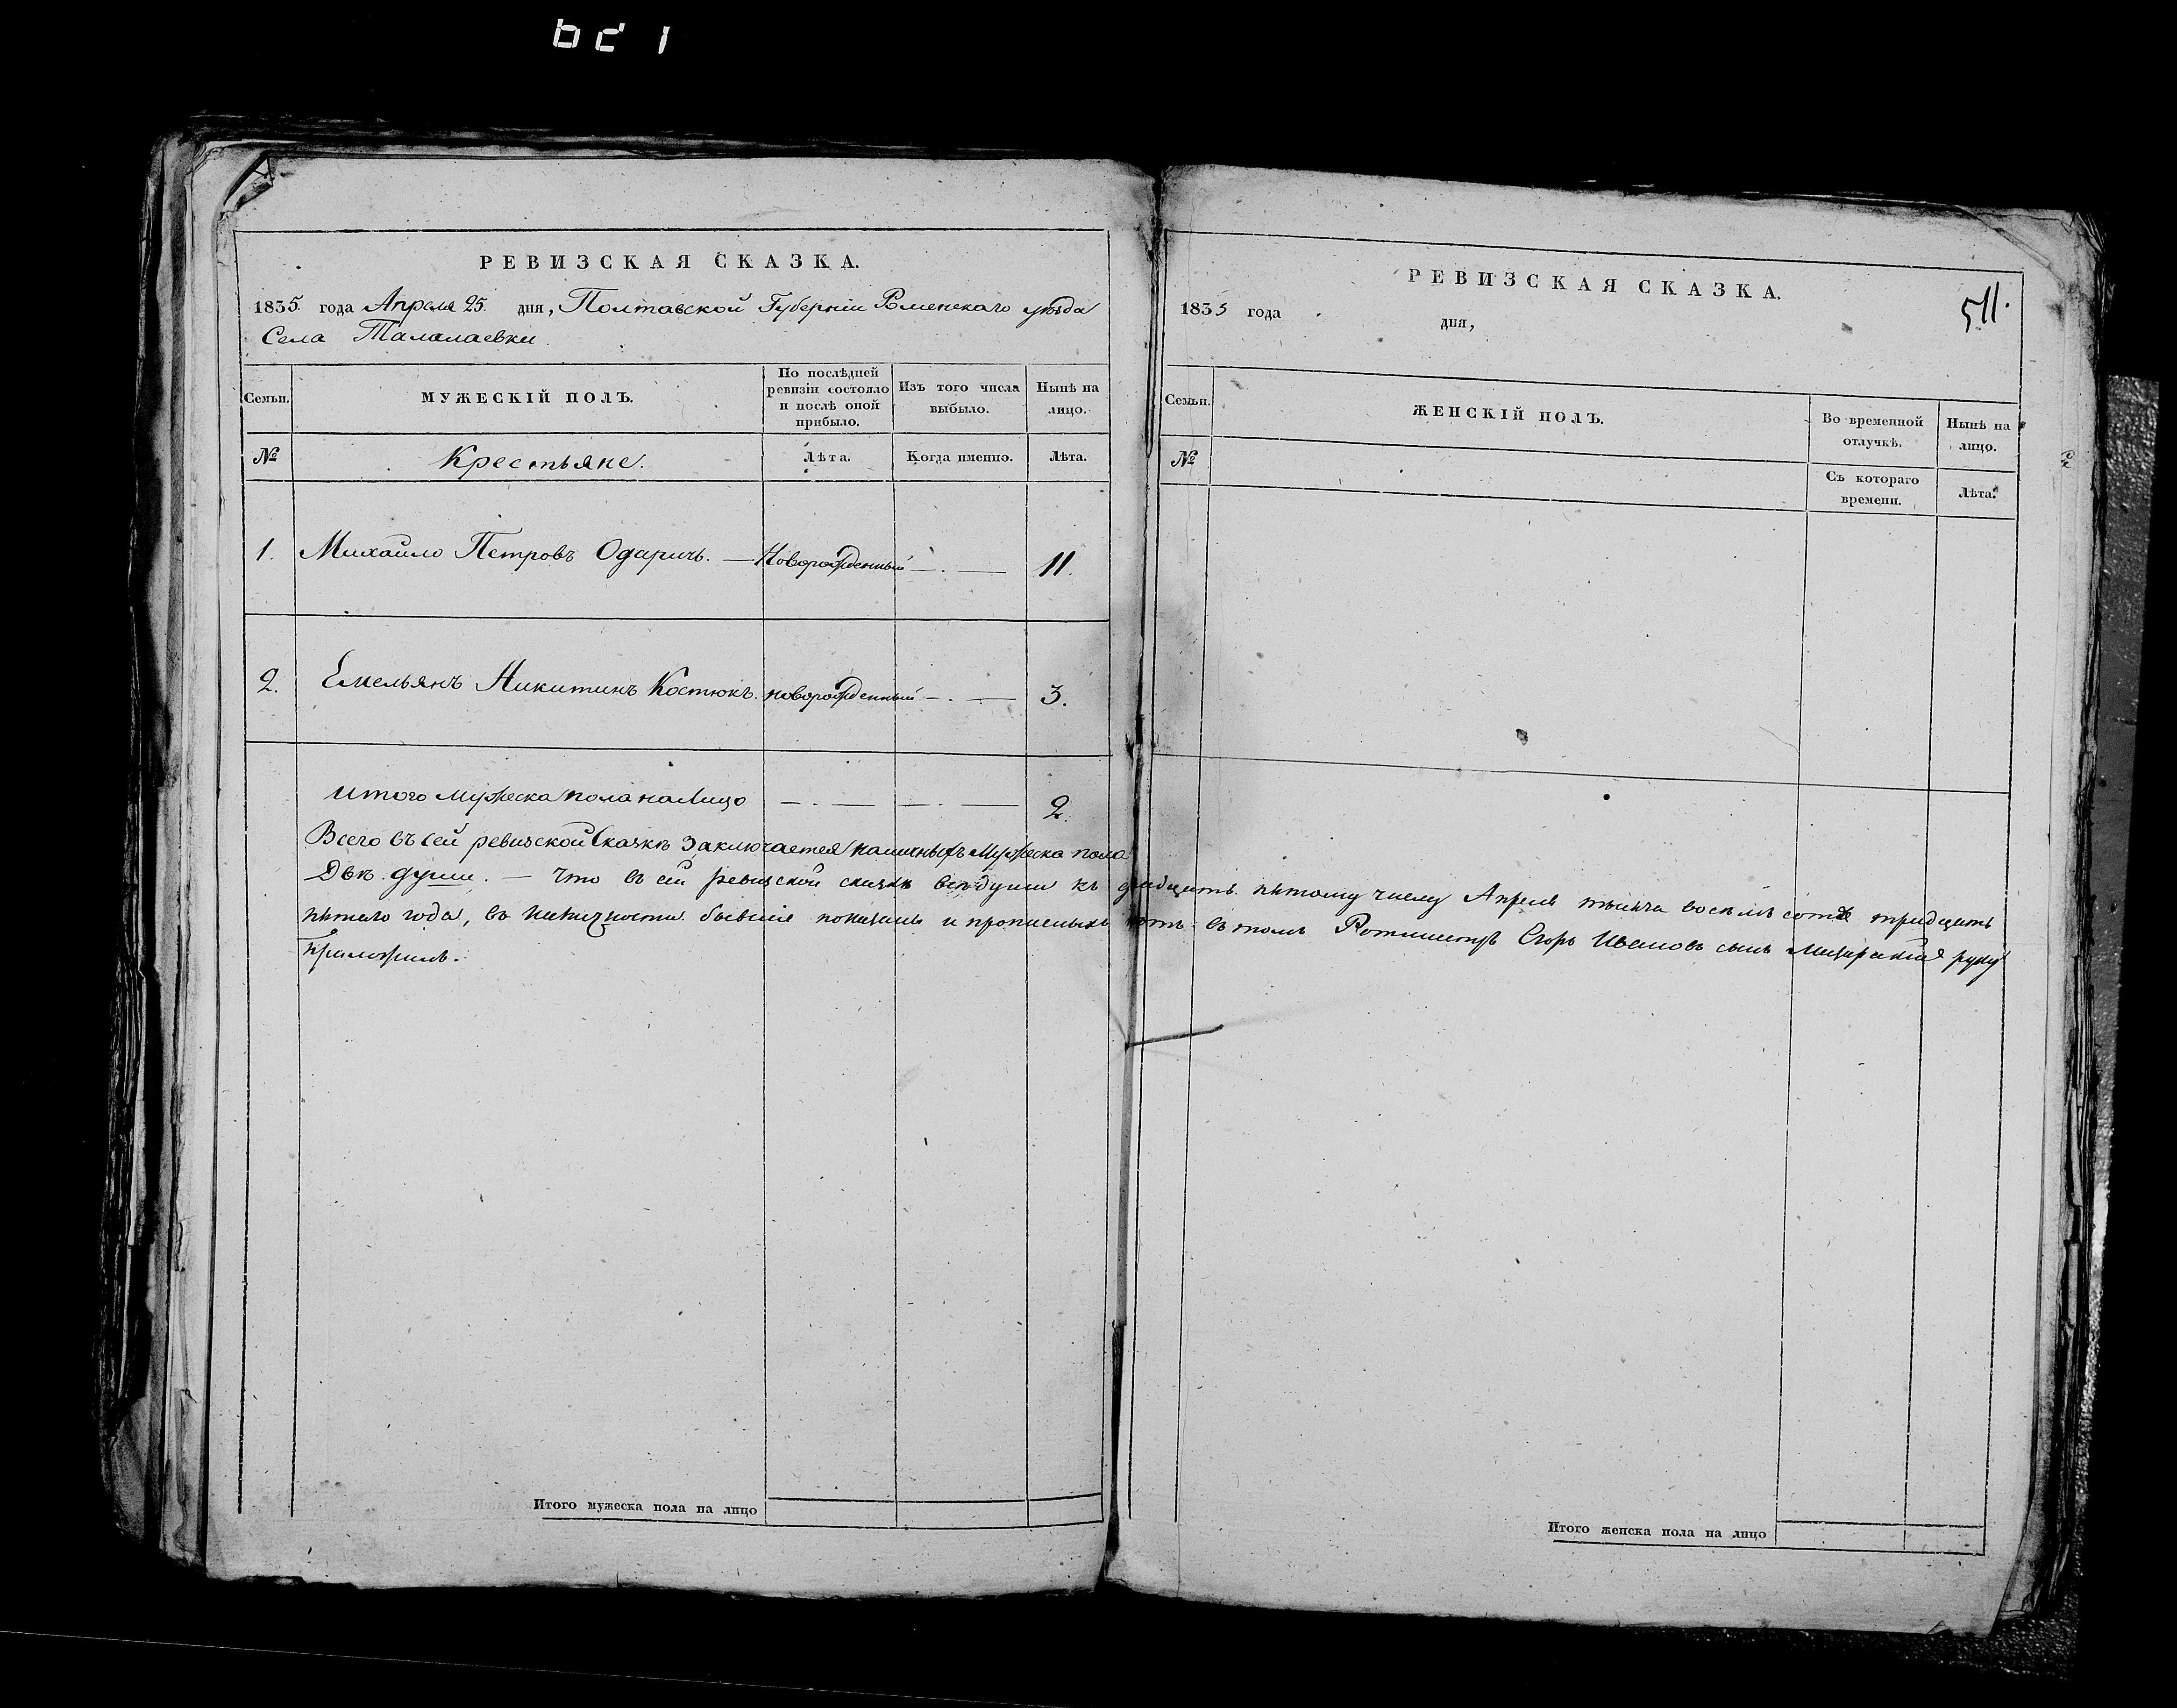 РЕВИЗСКАЯ СКАЗКА.
1835. года Апреля 25. дня, Полтавской Губерніи Роменскаго уѣзда
Села Талалаевки.
Семьи.
МУЖЕСКІЙ ПОЛЪ.
По послѣдней ревизіи состояло и послѣ оной прибыло.
Изъ того числа выбыло.
Нынѣ на лицо.
№
Крестьяне.
Лѣта.
Когда именно.
Лѣта.
1. Михайло Петровъ Одаричь. — Новорожденный —. — 11.
2. Емельянъ Никитинъ Костюкъ. новорожденный —. — 3.
Итого мужеска пола на лицо —. — —. — 2.
Всего въ сей ревизской Сказкѣ Заключается наличныхъ Мужеска пола
Двѣ души. — Что въ сей ревизской сказкѣ всѣ души къ двадцать пятому числу Апреля тысяча восемь сотъ тридцать
пятого года, въ наличности бывшіе показаны и прописныхъ нѣтъ въ томъ Ротмистръ Егоръ Ивановъ сынъ руку
приложилъ.
Итого мужеска пола на лицо
РЕВИЗСКАЯ СКАЗКА.
1835 года дня,
511.
Семьи.
ЖЕНСКІЙ ПОЛЪ.
Во временной отлучкѣ.
Нынѣ на лицо.
№
Съ котораго времени.
Лѣта.
Итого женска пола на лицо